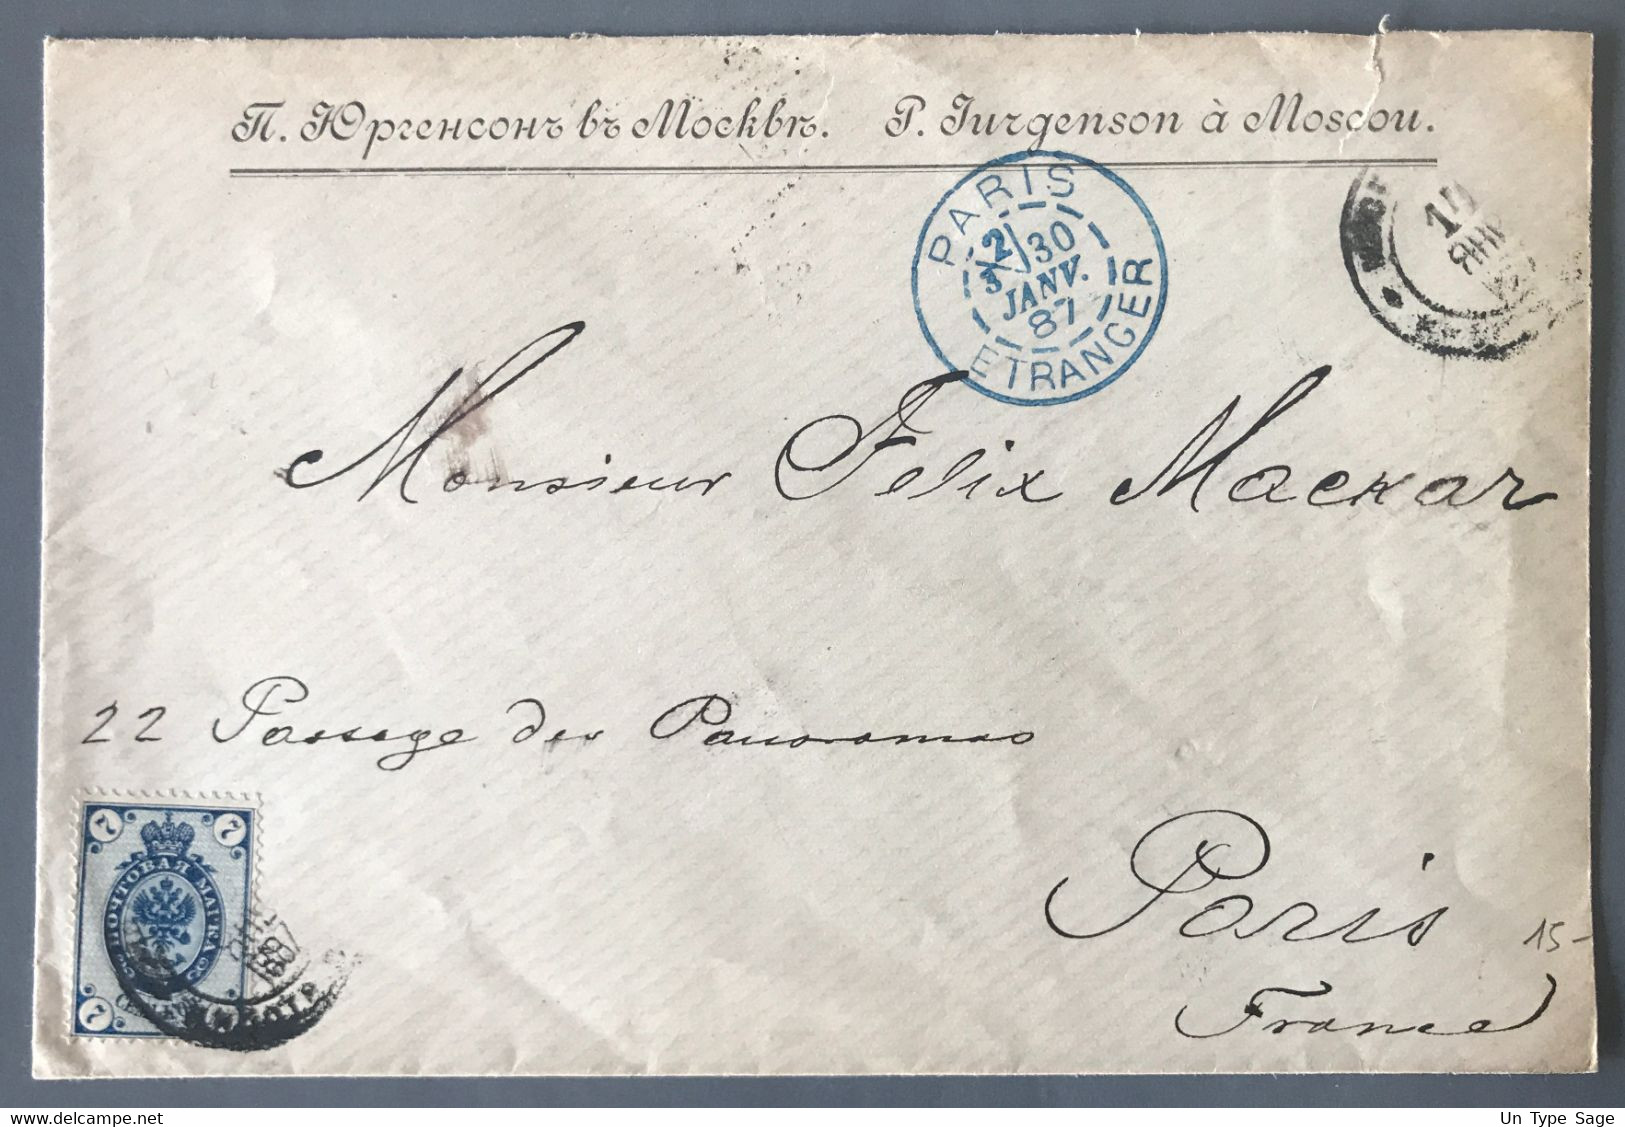 П. Юргенсонъ въ Москвѣ. P. Jurgenson à Moscou.
PARIS
2
3
30
JANV.
87
ETRANGER
ЯНВ
Monsieur Felix Mackar
22 Passage des Panoramas
7 7
ПОЧТОВАЯ МАРКА
7
Paris
15-
France
delcampe.net
Un Type Sage